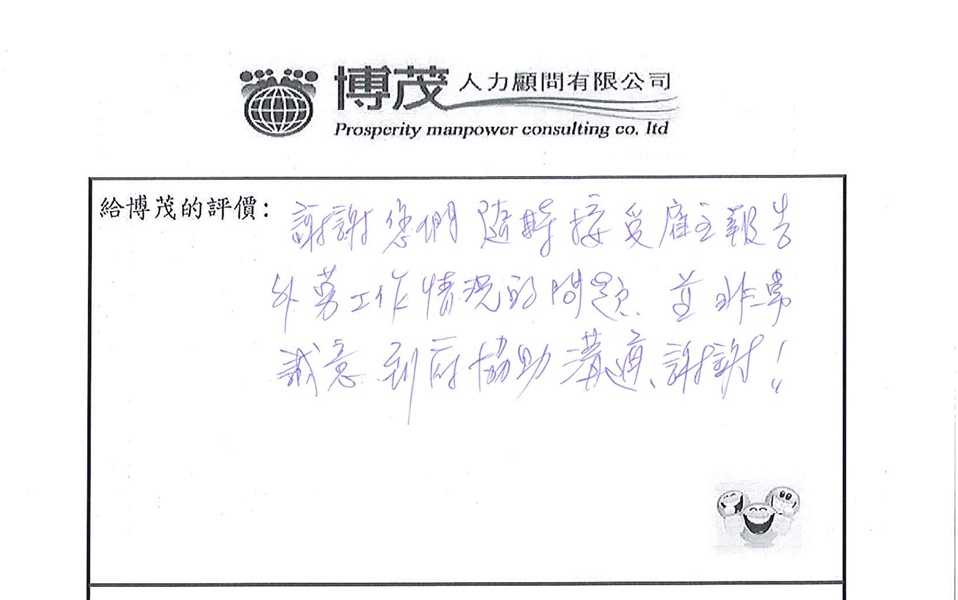 博茂人力顧問有限公司
Prosperity manpower consulting co. ltd
給博茂的評價：謝謝您們隨時接受雇主報告
外勞工作情況的問題、並非常
誠意到府協助溝通、謝謝！